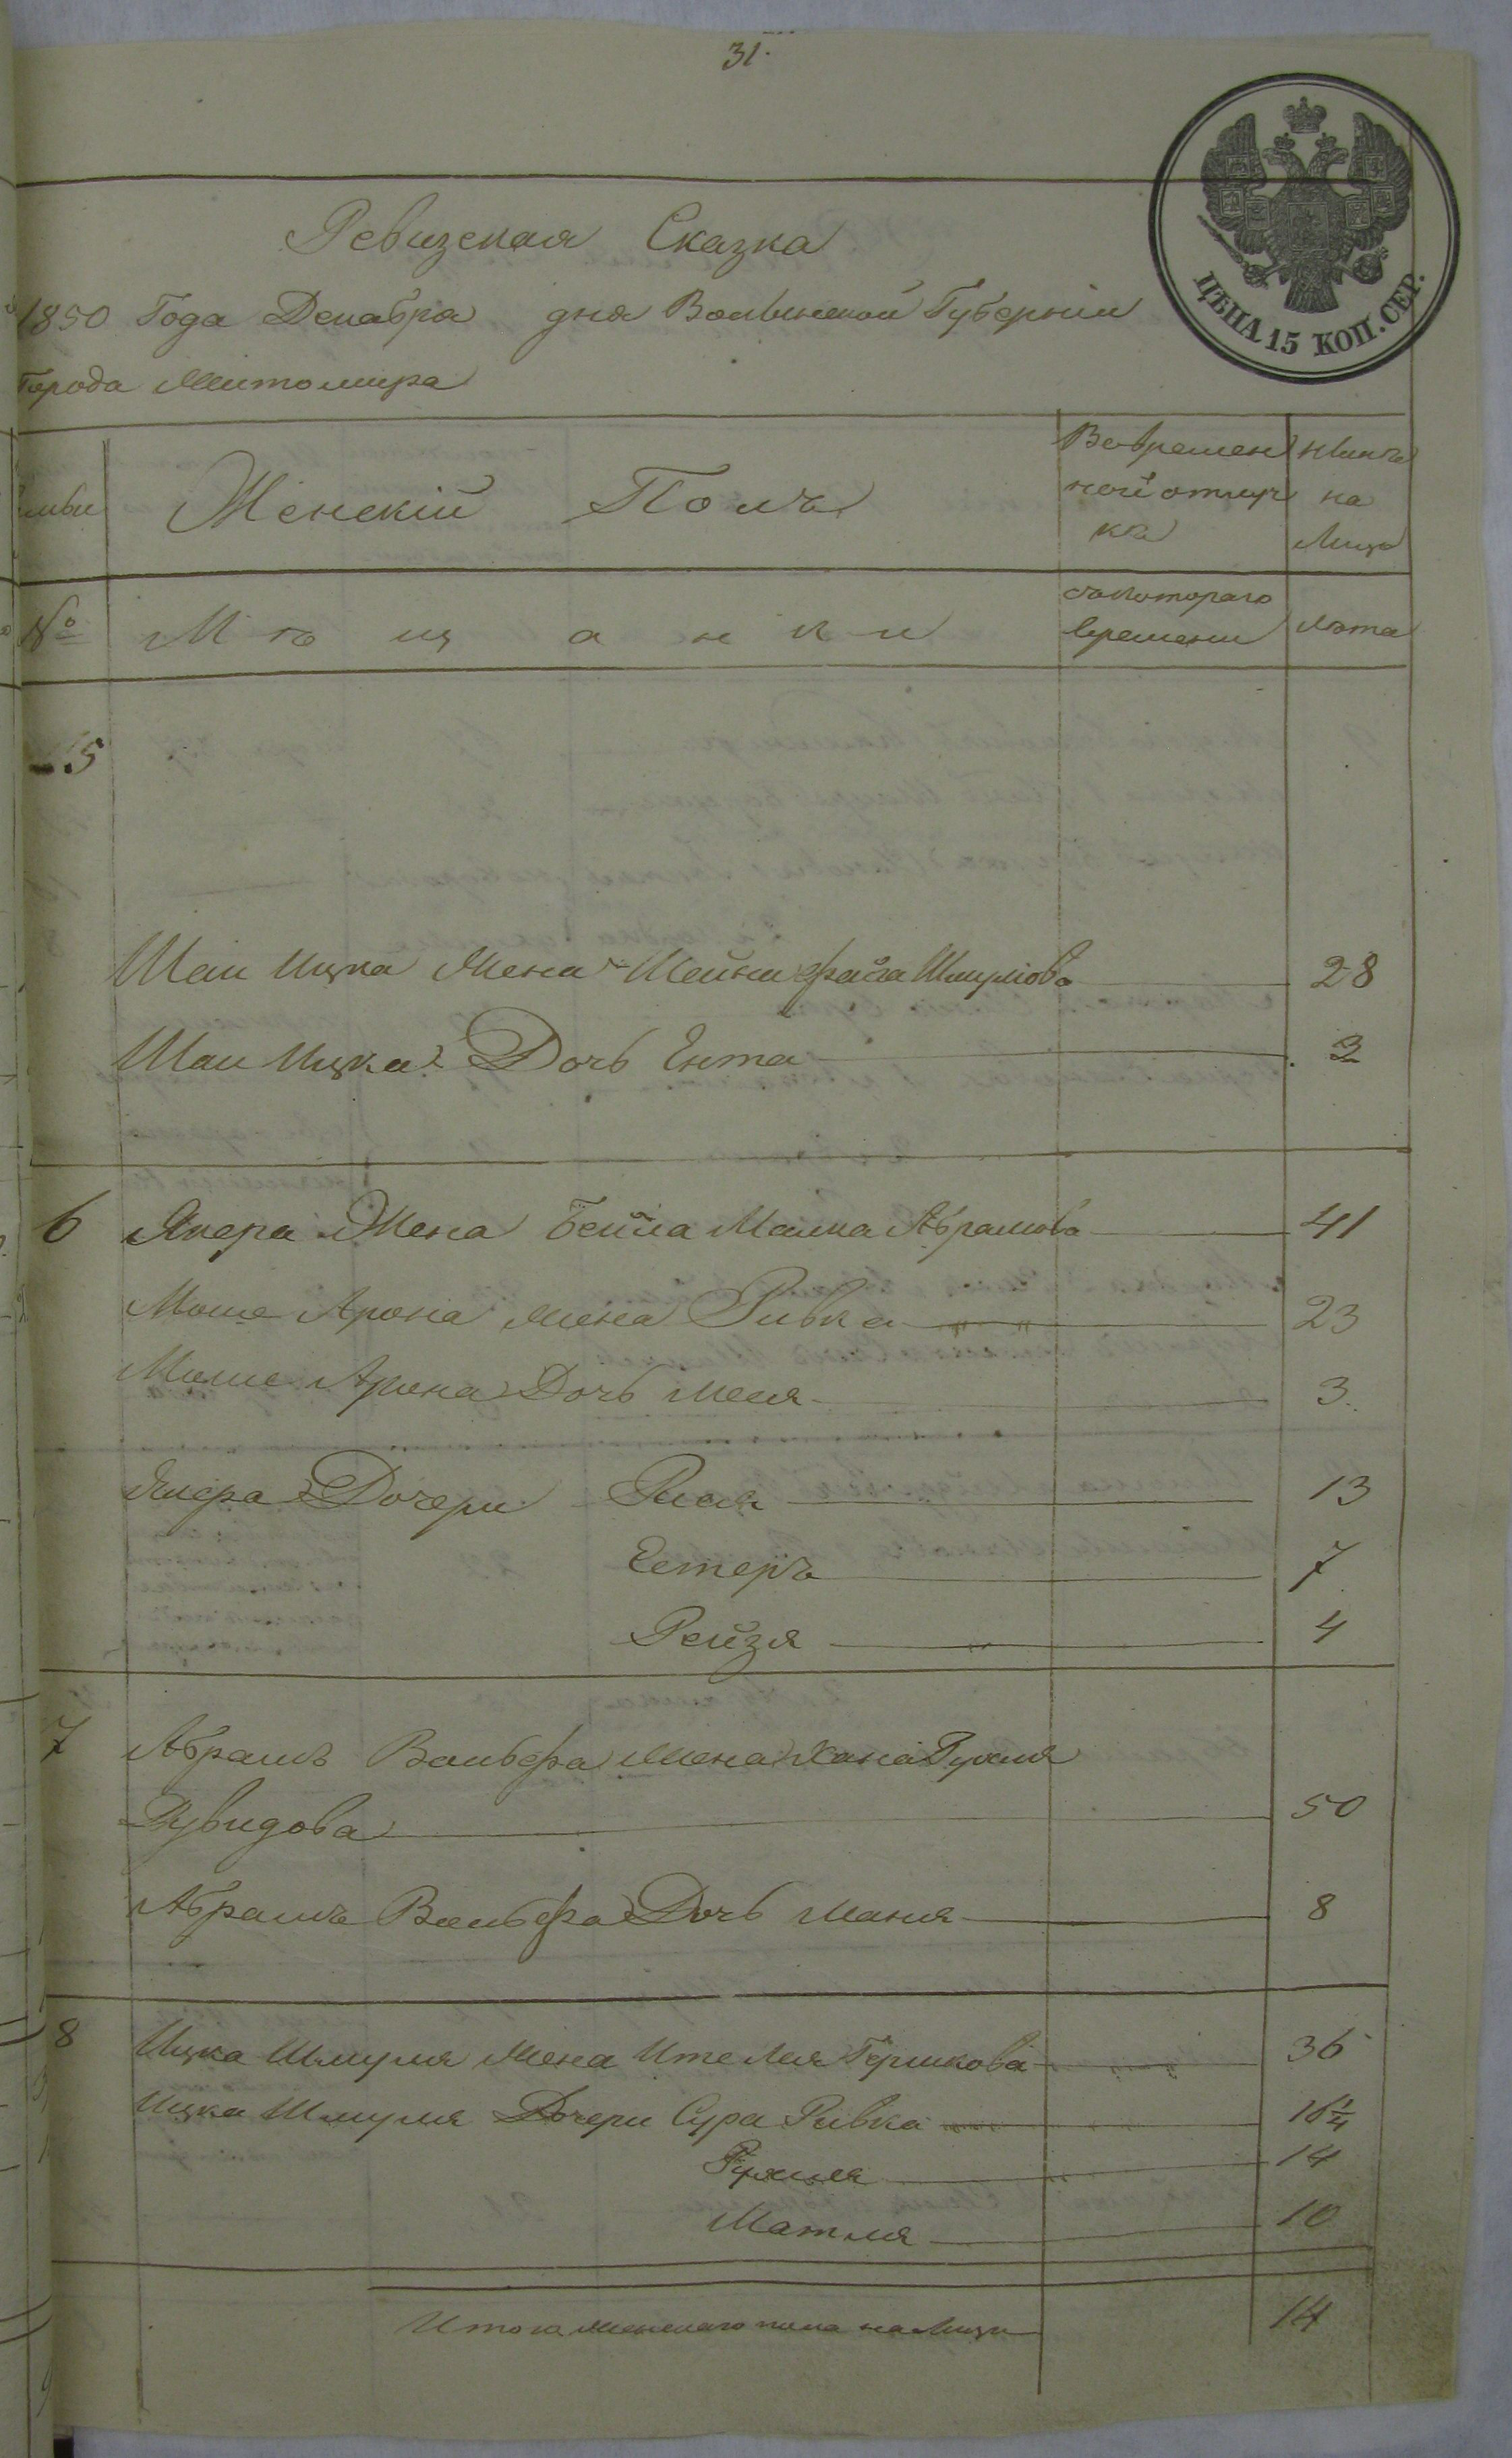 31.
ЦѢНА 15 КОП. СЕР.
Ревизская Сказка
1850 Года Декабря дня Волынской Губерніи
Города Житомира
Женскій Полъ
Во временной отлучкѣ
Нынѣ на Лицо
№
Мѣщанки
съ котораго времени
лѣта
5
Шаи Ицка Жена Шейна Файга Шмулiова 28
Шаи Ицка Дочь Ента 3
6 Янкера Жена Бейла Малка Абрамова 41
Моше Арона жена Ривка 23
Моше Арона Дочь 3
Янкера Дочери 13
Естеръ 7
Рейзя 4
7 Абрамъ Вольфа Жена Хана Рухля
Дувидова 50
Абрамъ Вольфа Дочь Маня 8
8 Ицка Шмуля Жена Ите Лея Гершкова 36
Ицка Шмуля Дочери Сура Ривка 16¼
Рухля 14
Матля 10
Итого женскаго пола на Лицо 14